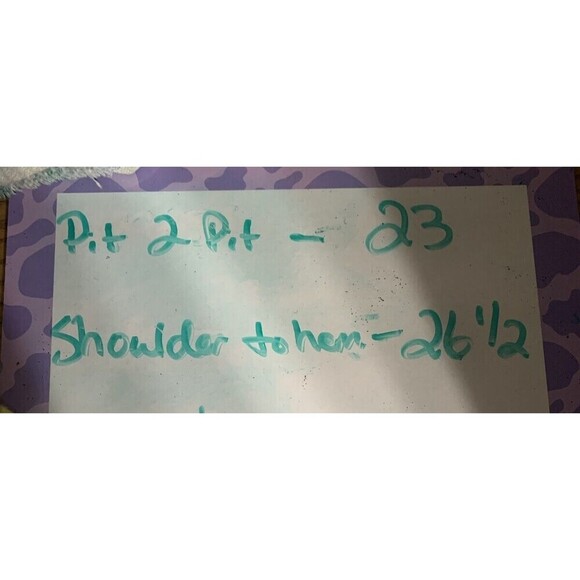 Pit 2 Pit - 23
Shoulder to hem - 26 1/2